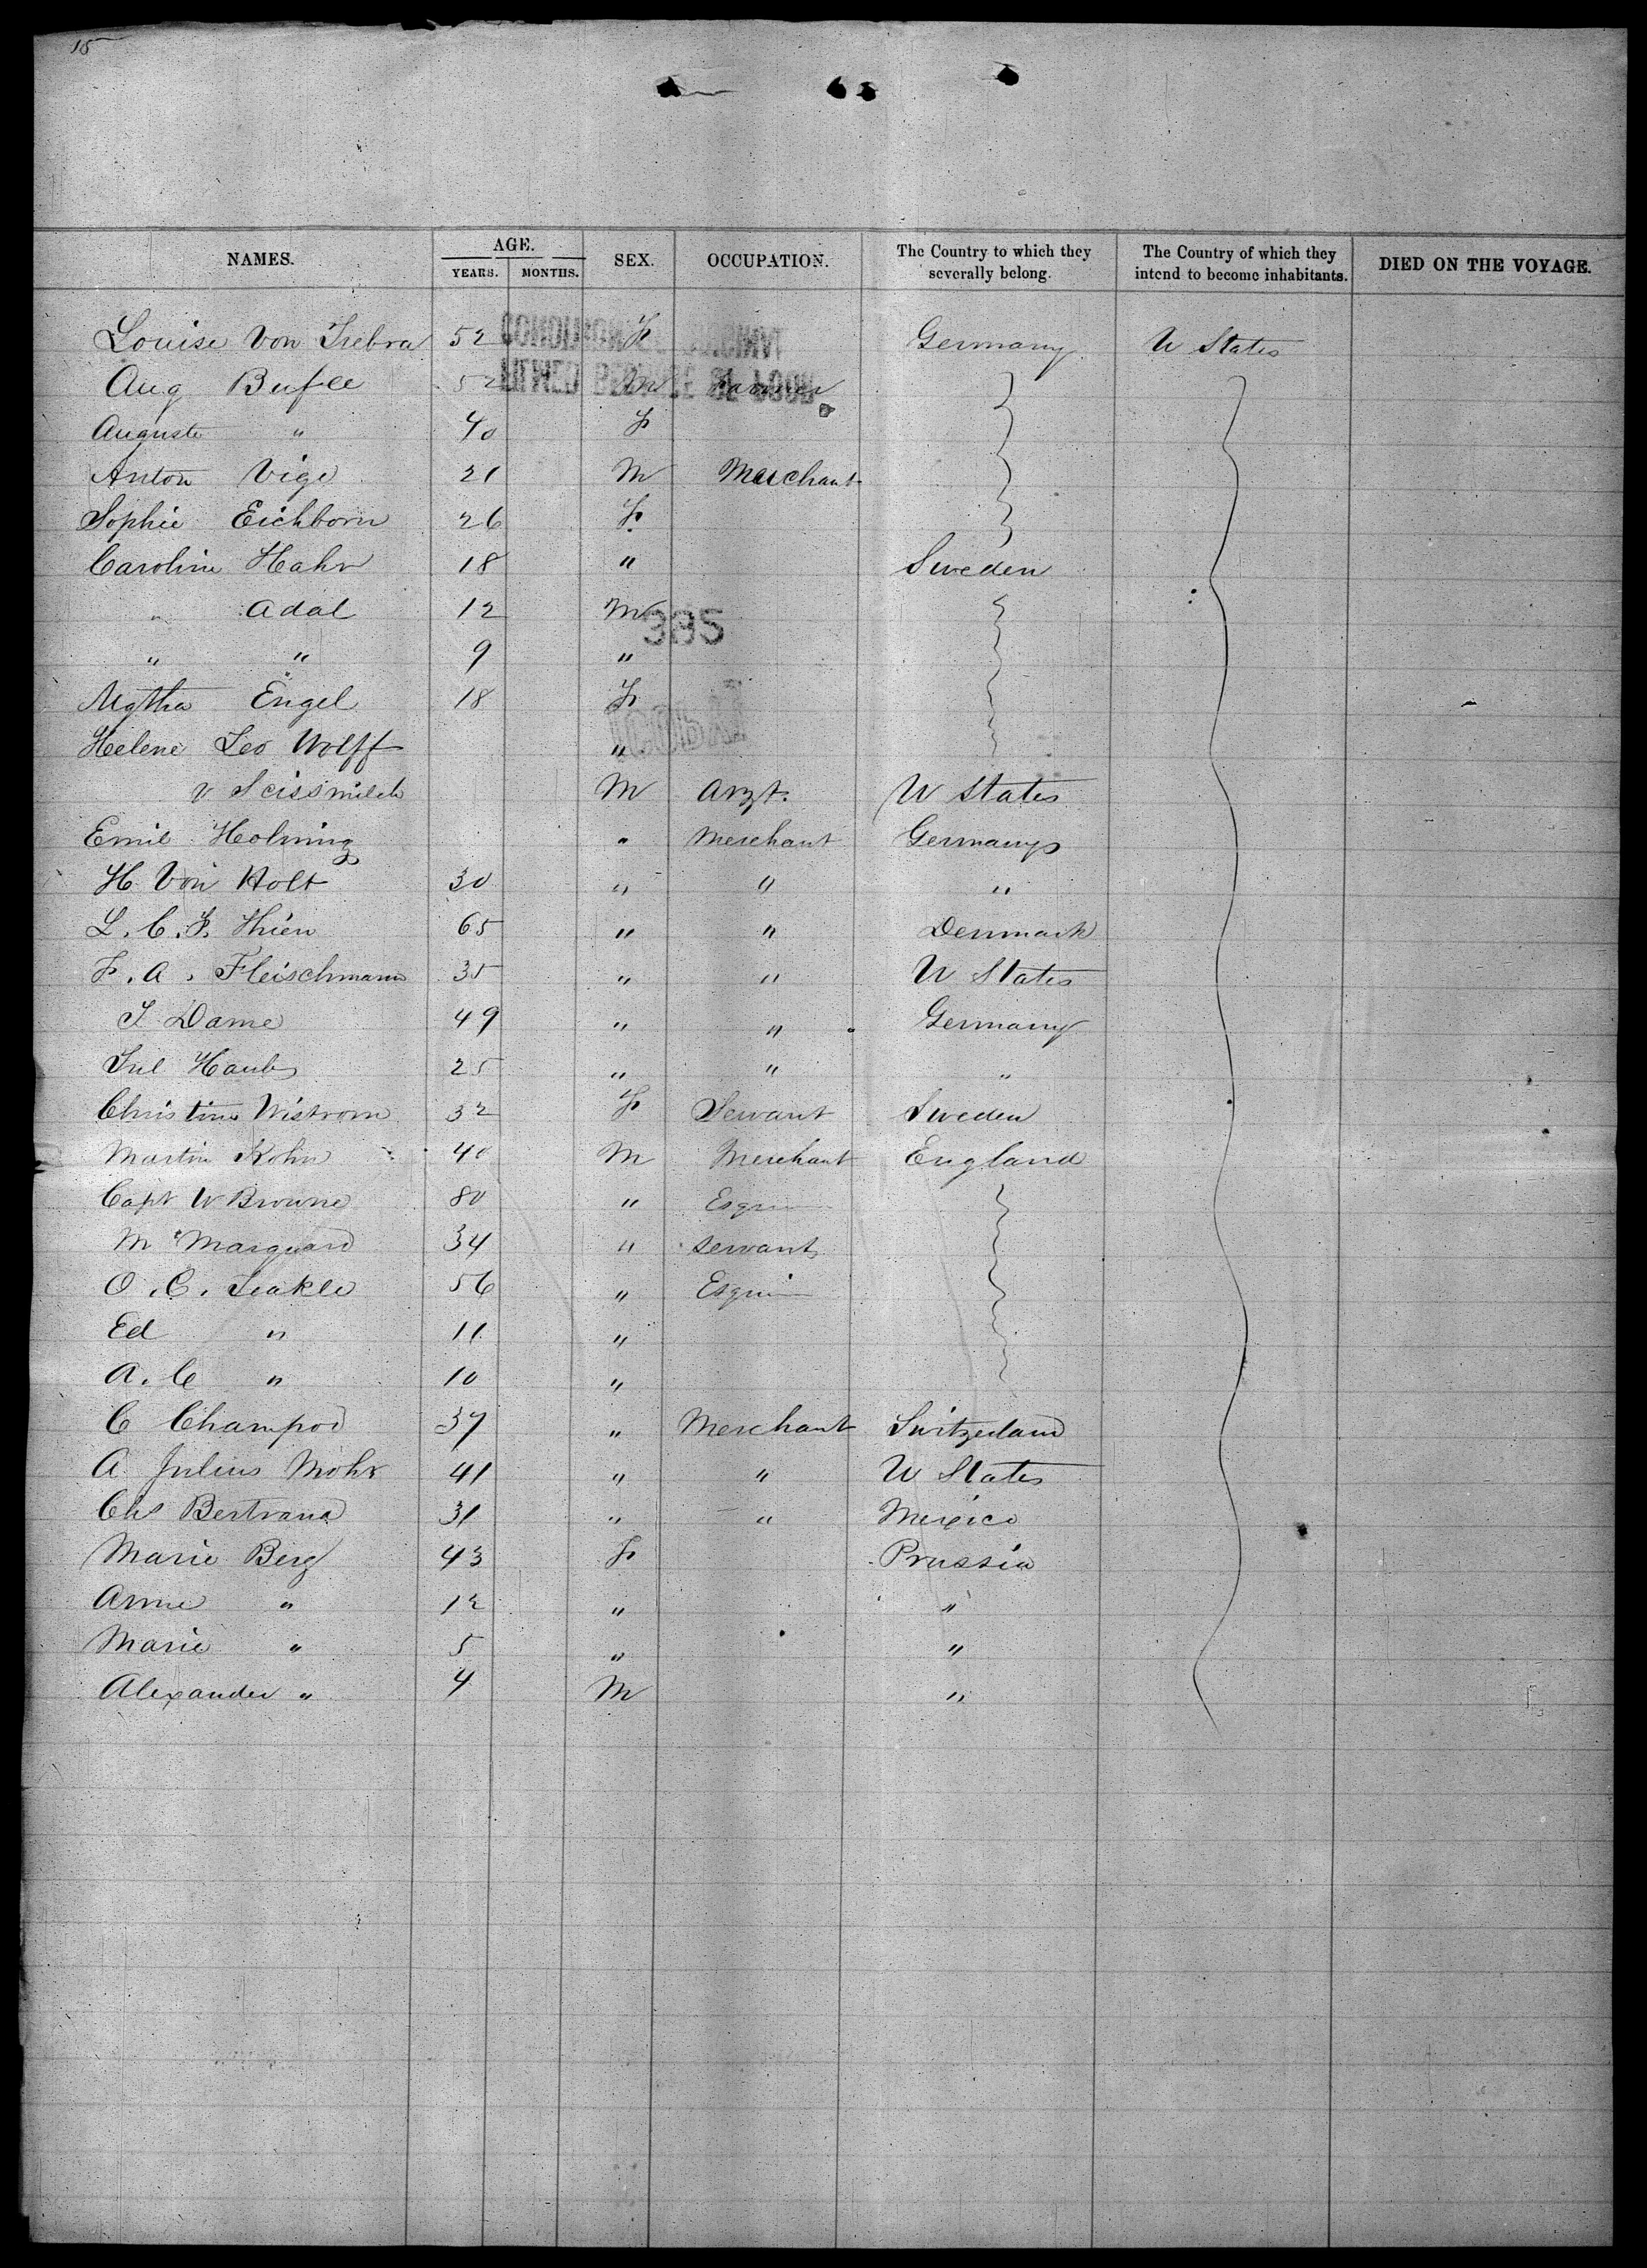 15
NAMES. AGE. YEARS. MONTHS. SEX. OCCUPATION. The Country to which they severally belong. The Country of which they intend to become inhabitants. DIED ON THE VOYAGE.
Louise Von Trebra 52 F Germany U States
Aug Bufee 52 M Farmer
Auguste " 40 F
Anton Vige 21 M Merchant
Sophie Eichborn 26 F
Caroline Hahr 18 " Sweden
" Adal 12 M
385
" " 9 "
Engel 18 F
Helene Leo Wolff "
v M Arzt. U States
Emil Holming " Merchant Germany
H Von Holt 30 " " "
L. C. F. Thien 65 " " Denmark
F. A. Fleischmann 35 " " U States
J Dame 49 " " Germany
Jul Haub 25 " " "
Christine Wistrom 32 F Servant Sweden
Martin Kohn 40 M Merchant England
Capt W Browne 80 " Esqui
M Marquard 34 " Servant
O. C. Seakle 56 " Esqui
Ed " 11 "
A. C " 10 "
C Champod 37 " Merchant Switzerland
A Julius Mohr 41 " " U States
Chs Bertrand 31 " " Mexico
Marie Berg 43 F Prussia
Anne " 12 " "
Marie " 5 " "
Alexander " 4 M "